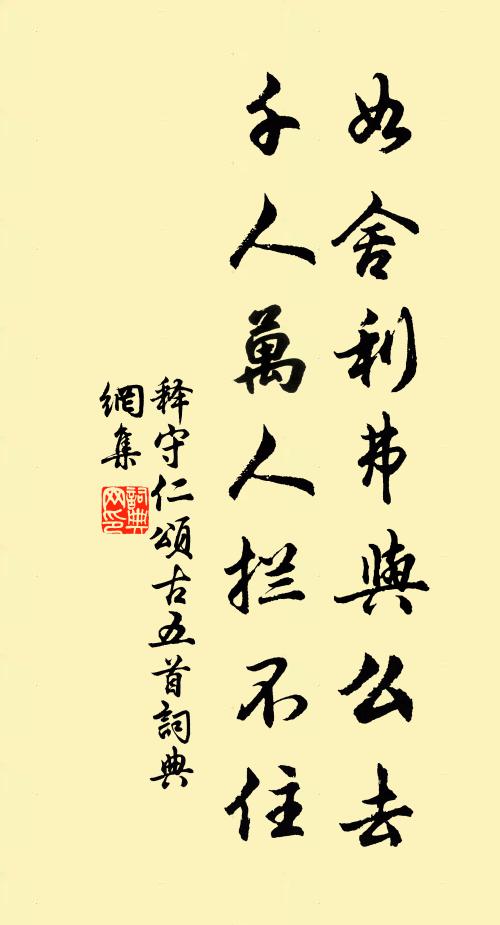 如舍利弗與么去
千人萬人拦不住
释守仁頌古五首詞典
網集
詞典
网印